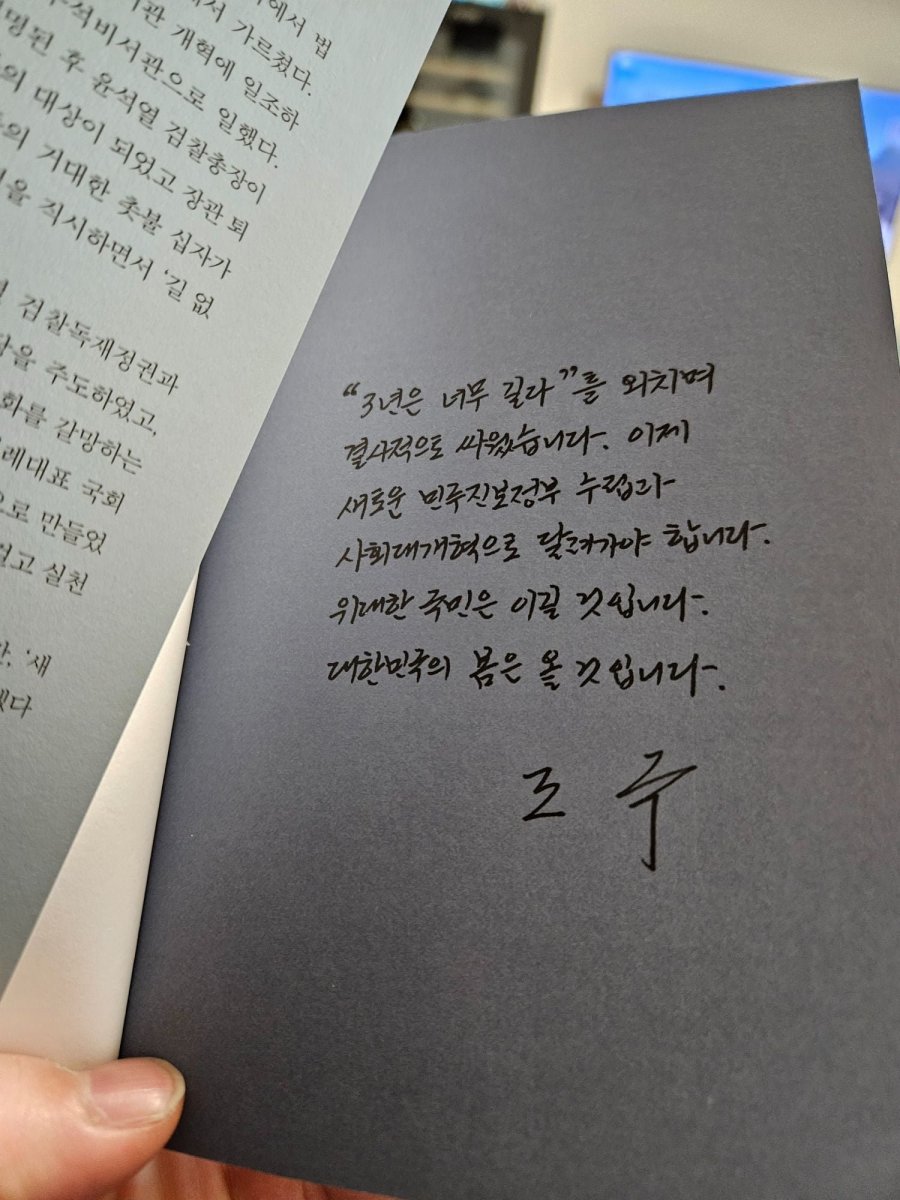 에서 법
에서 가르쳤다.
수석비서관으로 일했다.
기관 개혁에 일조하
명된 후 윤석열 검찰총장이
의 대상이 되었고 장관 퇴
의 거대한 촛불 십자가
을 직시하면서 ‘길 없
검찰독재정권과
을 주도하였고,
화를 갈망하는
례대표 국회
으로 만들었
고 실천
‘새
했다
“3년은 너무 길다”를 외치며
결사적으로 싸웠습니다. 이제
새로운 민주진보정부 수립과
사회대개혁으로 달려가야 합니다.
위대한 국민은 이길 것입니다.
대한민국의 봄은 올 것입니다.
조 국